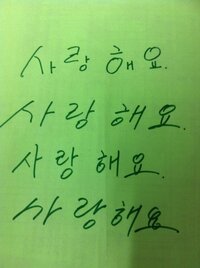 사랑 해요.
사랑 해요.
사랑 해요.
사랑해요